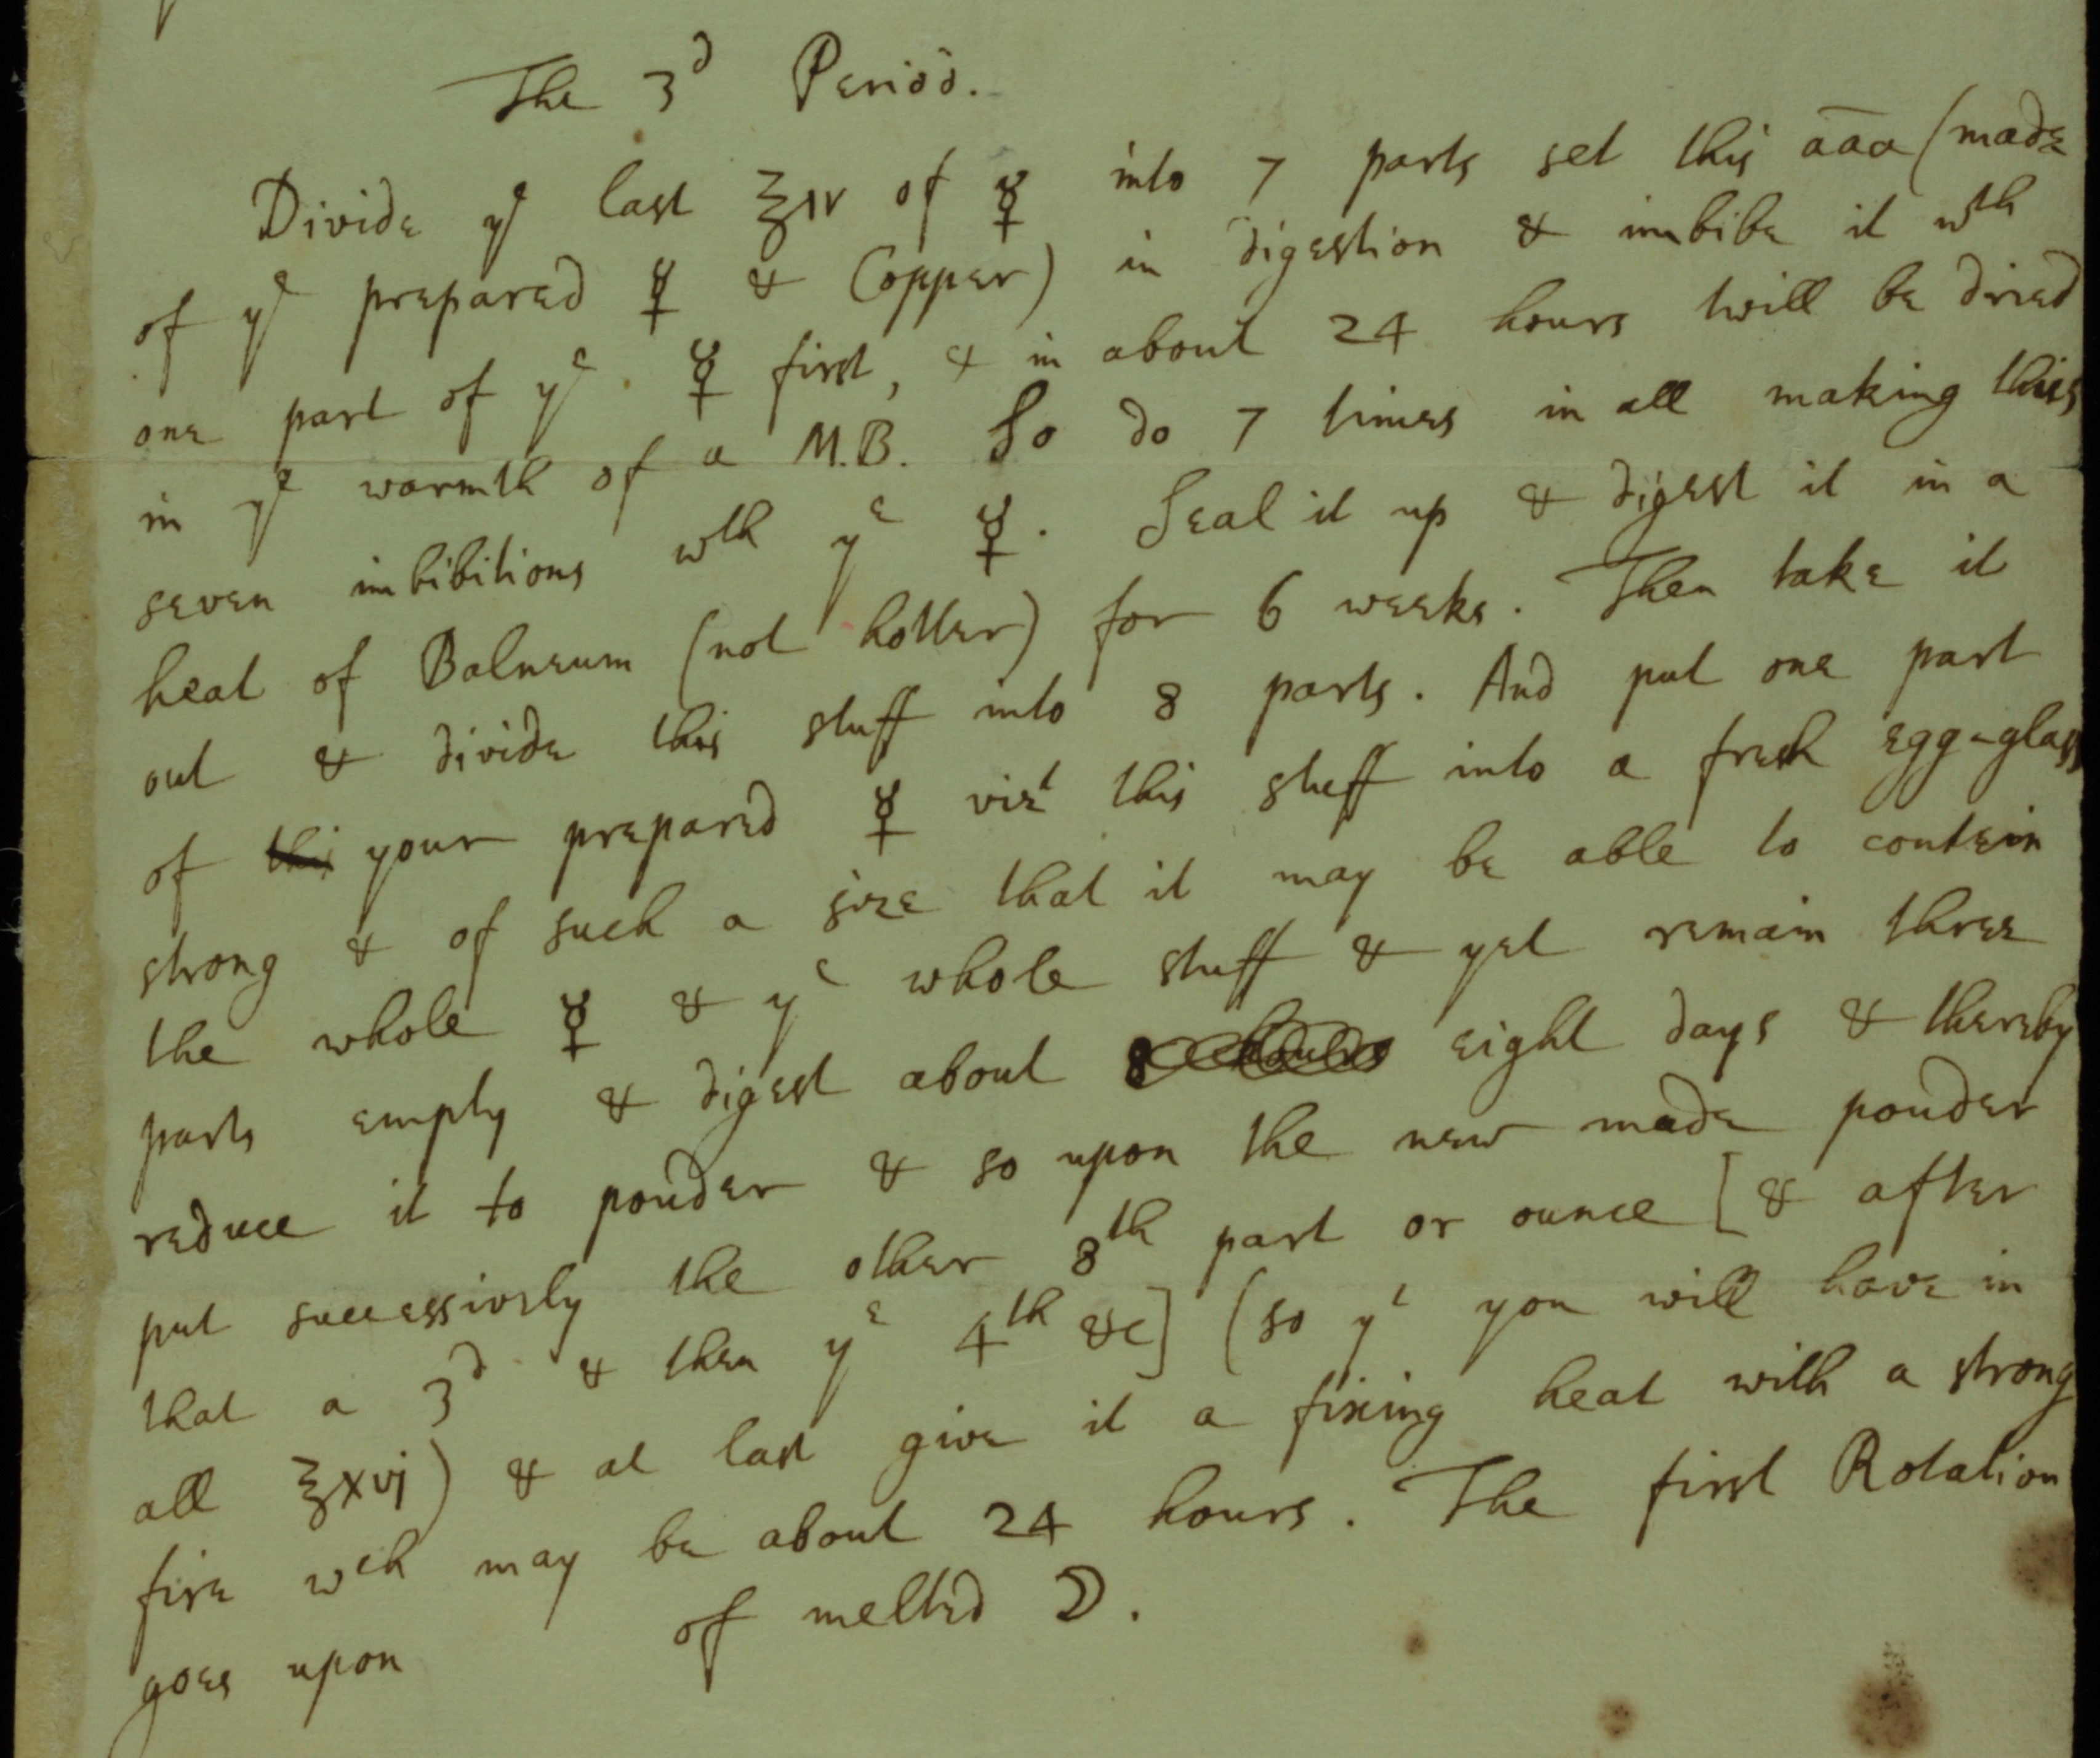 The 3d Period.
Divide ye last ℥iv of ☿ into 7 parts set this āāa (made
of ye prepared ☿ & Copper) in digestion & imbibe it wth
one part of ye ☿ first, & in about 24 hours twill be dried
in ye warmth of a M.B. So do 7 times in all making this
seven imbibitions wth ye ☿. Seal it up & digest it in a
heat of Balneum (not hotter) for 6 weeks. Then take it
out & divide this stuff into 8 parts. And put one part
of thi your prepared ☿ vizt this stuff into a fresh egg-glass
strong & of such a size that it may be able to contein
the whole ☿ & ye whole stuff & yet remain three
parts empty & digest about 8 hours eight days & thereby
reduce it to pouder & so upon the new made pouder
put successively the other 8th part or ounce [& after
that a 3d & then ye 4th &c] (so yt you will have in
all ℥xvj) & at last give it a fixing heat with a strong
fire wch may be about 24 hours. The first Rotation
goes upon of melted ☽.